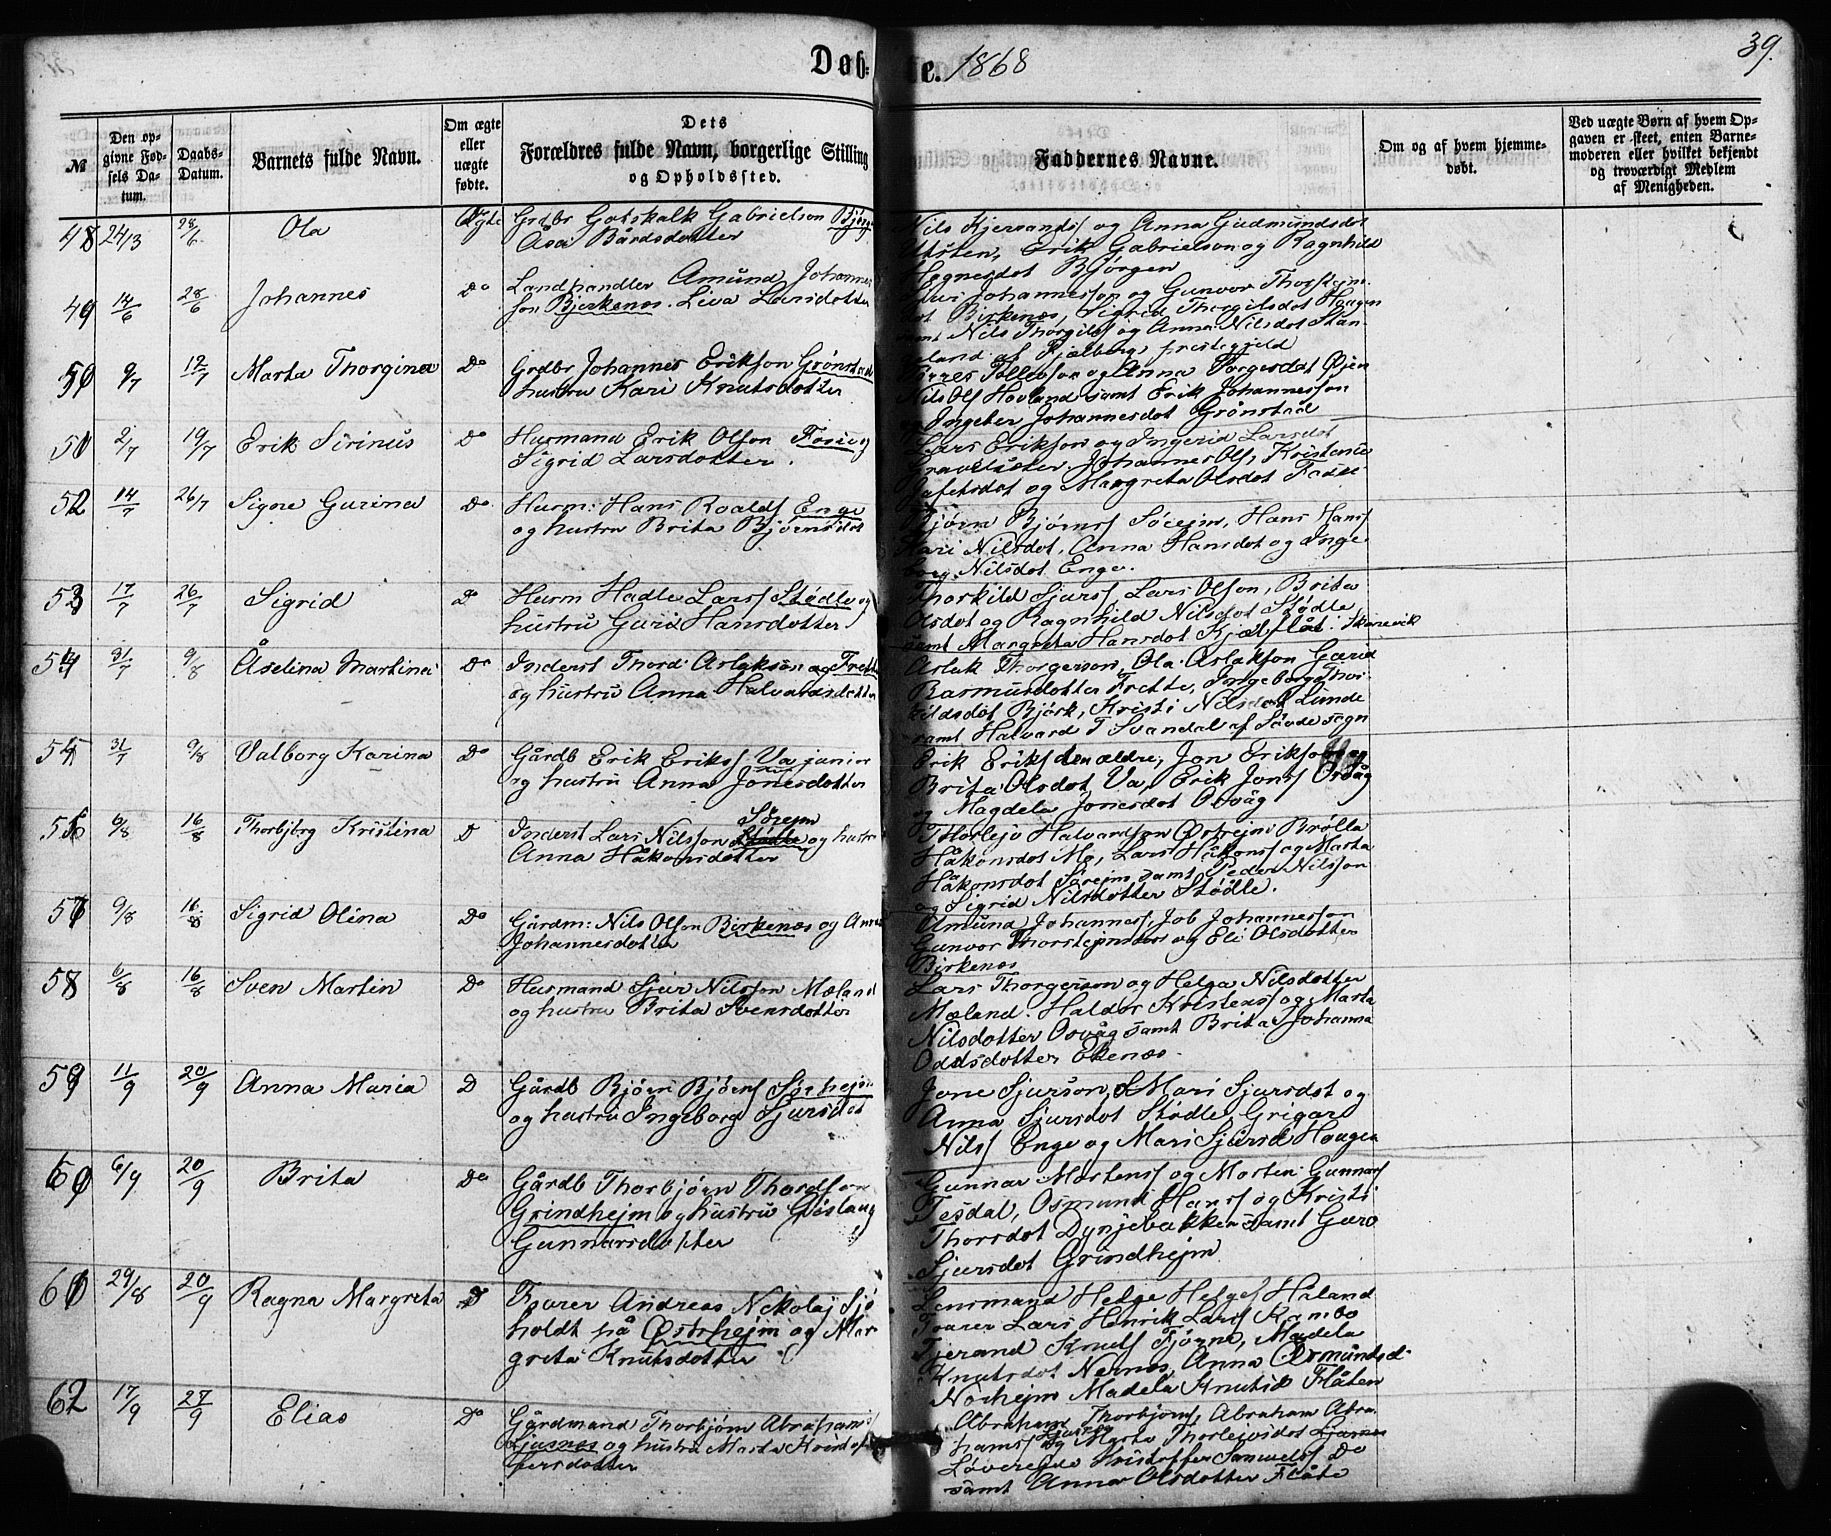 Døb- te. 1868
39.
№
Den opgivne Fødsels Datum.
Daabs-Datum.
Barnets fulde Navn.
Om ægte eller uægte fødte.
Dets Forældres fulde Navn, borgerlige Stilling og Opholdssted.
Faddernes Navne.
Om og af hvem hjemmedøbt.
Ved uægte Børn af hvem Opgaven er skeet, enten Barnemoderen eller hvilket bekjendt og troværdigt Medlem af Menigheden.
48 24/3 28/6 Ola Ægte Grdbr Gotskalk Gabrielson
Åsa Bårdsdotter
og Anna Gudmundsdot
Utsten, Erik Gabrielson og Ragnhild
Hognesdot Bjørgen
49 14/6 28/6 Johannes Do Landhandler Amund Johannes
son Bjerkenes. Liva Larsdotter
Johannesson og Gunvor Thorstejns
Birkenes, Sigrid Thorgilsdot Haugen
Nils Thorgilss og Anna Nilsdot
af Fjælberg prestegjeld
50 9/7 12/7 Marta Thorgina Do Grdbr Johannes Erikson Grønstad
hustru Kari Knutsdotter
Tollevson og Anna Torgesdot Øjen
Nils Ols Hovland samt Erik Johannesson
Ingebor Johannesdot Grønstad
51 2/7 19/7 Erik Sirinus Do Husmand Erik Olson og
Sigrid Larsdotter.
Lars Erikson og Ingerid Larsdot
Johannes Ols, Kristense
og Margreta Olsdot
52 14/7 26/7 Signe Gurina Do Husm: Hans Roalds Enge
og hustru Brita Bjørnsdot
Bjørn Bjørns Sörejm, Hans Hans
Kari Nilsdot, Anna Hansdot og Inge
borg Nilsdot Enge.
53 17/7 26/7 Sigrid Do Husm Hadle Lars Stødle og
hustru Guri Hansdotter
Thorkild Sjurs Lars Olson, Brita
Olsdot og Ragnhild Nilsdot Stødle
samt Margreta Hansdot Kjælflåt. Skånevik
54 31/7 9/8 Åselina Martina Do Inderst Thord Aslakson Frette
og hustru Anna Halvardsdotter
Aslak Thorgerson, Ola Aslakson Guri
Rasmusdotter Frette, Ingeborg Thor
kildsdot Bjørk, Kristi Nilsdot Lunde
samt Halvard T Svandal af Søvde sogn
55 31/7 9/8 Valborg Karina Do Gårdb Erik Eriks Va junior
og hustru Anna Jonesdotter
Erik Eriks den ældre, Jon Erikson og
Brita Olsdot, Va, Erik Jons Osvåg
og Magdela Jonesdot Osvåg
56 6/8 16/8 Thorbjørg Kristina D Inderst Lars Nilsson Sörejm og hustru
Anna Håkonsdotter
Thorlejv Halvardson Østrejm Brølla
Håkonsdot Mo, Lars Håkons og Marta
Håkonsdot Sørejm samt Peder Nilsson
og Sigrid Nilsdotter Stødle.
57 9/8 16/8 Sigrid Olina Do Gårdm: Nils Olson Birkenes og Anna
Johannesdotter
Amund Johannes, Job Johannesson
Gunvor Thorstejnsdot og Eli Olsdotter
Birkenes
58 6/8 16/8 Sven Martin Do Husmand Sjur Nilsson Mæland
og hustru Brita Svensdotter
Lars Thorgerson og Helga Nilsdotter
Mæland. Haldor Kristens og Marta
Nilsdotter Osvåg samt Brita Johanna
Oddsdotter Ekenæs.
59 11/9 20/9 Anna Maria D Gårdb Bjørn Bjørns Sørhejm
og hustru Ingeborg Sjursdot
Jone Sjurson, Mari Sjursdot og
Anna Sjursdot Stødle, Grigar
Nils Enge og Mari Sjursd Haugen
60 6/9 20/9 Brita Do Gårdb Thorbjørn Thordson
Grindhejm og hustru Gislaug
Gunnarsdotter
Gunnar Mortens og Morten Gunnars
Tesdal, Osmund Hans og Kristi
Thorsdot Dynjebakken samt Guro
Sjursdot Grindhejm
61 29/8 20/9 Ragna Margreta D Farer Andreas Nikolaj Sjø
holdt på Østrhejm og Mar
greta Knutsdotter
Lensmand Helge Helges Håland
Farer Lars Henrik Lars Kambo
Tjerand Knuts Fjøsne, Madela
Knutsdot Nernes, Anna Osmundsd
Norhejm Madela Knutsd Flåten
62 17/9 27/9 Elias Do Gårdmand Thorbjørn Abrahams
Ljusnes og hustru Marta Kristof
fersdotter
Abraham Thorbjørns, Abraham Abra
hams Ljusnes og Marta Thorlejvsdot Ljusnes
Løvereide Kristoffer Samuels Do
samt Anna Olsdotter Flåte